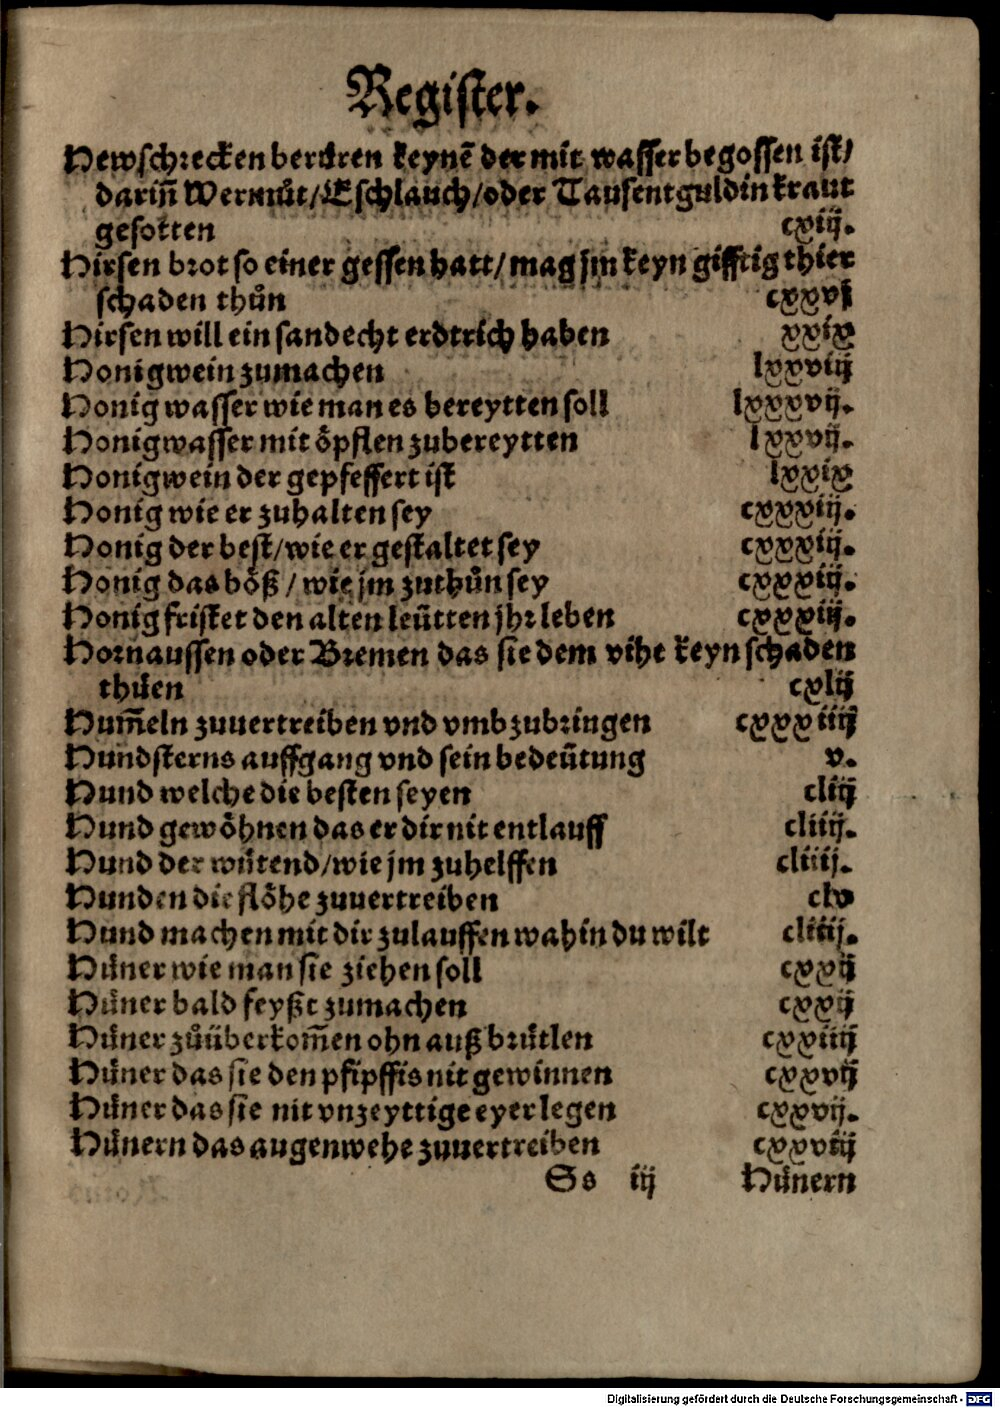 Register.
Hewschrecken berüren keynē der mit wasser begossen ist/
darin̄ Wermůt/Eschlauch/oder Tausentguldinkraut
gesotten cxiij.
Hirsen brot so einer gessen hatt/mag jm keyn gifftig thier
schaden thůn cxxvj
Hirsen will ein sandecht erdtrich haben xxix
Honigwein zumachen lxxviij
Honig wasser wie man es bereytten soll lxxxvij.
Honigwasser mit öpflen zubereytten lxxvij.
Honigwein der gepfeffert ist lxxix
Honig wie er zuhalten sey cxxxiij.
Honig der best/wie er gestaltet sey cxxxiij.
Honig das böß/wie jm zuthůn sey cxxxiij.
Honig fristet den alten leütten jhr leben cxxxiij.
Hornaussen oder Bremen das sie dem vihe keyn schaden
thüen cxlij
Hum̄eln zuuertreiben vnd vmbzubringen cxxxiiij
Hundsterns auffgang vnd sein bedeütung v.
Hund welche die besten seyen cliij
Hund gewöhnen das er dir nit entlauff cliiij.
Hund der wütend/wie jm zuhelffen cliiij.
Hunden die flöhe zuuertreiben clv
Hund machen mit dir zulauffen wahin du wilt cliiij.
Hüner wie man sie ziehen soll cxxij
Hüner bald feyßt zumachen cxxij
Hüner zůüberkom̄en ohn auß brütlen cxxiiij
Hüner das sie den pfipffis nit gewinnen cxxvij
Hüner das sie nit vnzeyttige eyer legen cxxvij.
Hünern das augenwehe zuuertreiben cxxviij
Ss iij Hünern
Digitalisierung gefördert durch die Deutsche Forschungsgemeinschaft - DFG